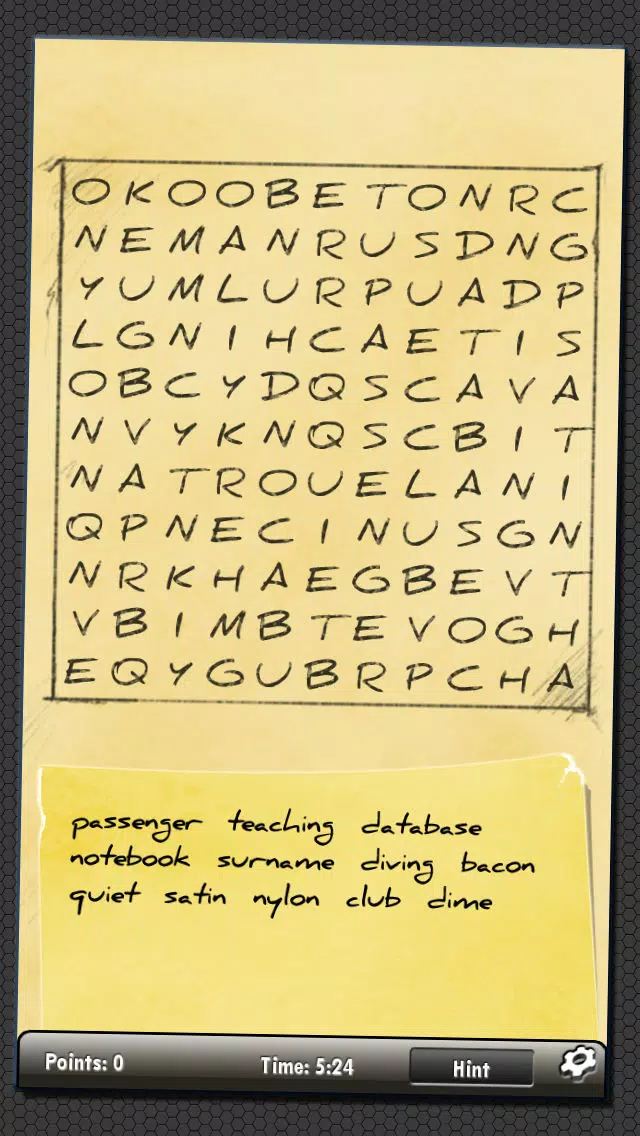 O K O O B E T O N R C
N E M A N R U S D N G
Y U M L U R P U A D P
L G N I H C A E T I S
O B C Y D Q S C A V A
N V Y K N Q S C B I T
N A T R O U E L A N I
Q P N E C I N U S G N
N R K H A E G B E V T
V B I M B T E V O G H
E Q Y G U B R P C H A
passenger teaching database
notebook surname diving bacon
quiet satin nylon club dime
Points: 0 Time: 5:24 Hint